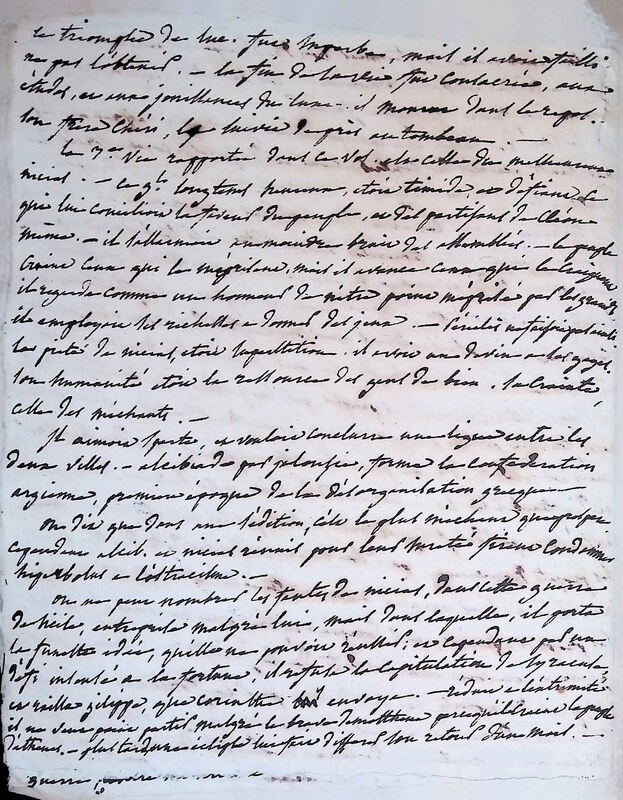 le triomphe de luc. fut superbe, mais il avoit failli
ne pas l'obtenir. — la fin de la vie fut consacrée, aux
études, et aux jouissances du luxe. il mourut dans le repos.
son frère chéri, le suivit de près au tombeau. —
la 2de vie rapportée dans ce vol. est celle du malheureux
nicias. — ce gl. longtems heureux, étoit timide et défiant, ce
qui lui concilioit la faveur du peuple, et des partisans de Cléon
même. — il s'allarmoit au moindre bruit des assemblées. — le peuple
craint ceux qui le méprisent, mais il avance ceux qui le craignent
il regarde comme un honneur de n'être point méprisé par les grands
il employoit ses richesses à donner des jeux. — Périclès
la piété de nicias, étoit superstition. il avoit un devin à ses gages.
son humanité étoit la ressource des gens de bien. sa crainte,
celle des méchants. —
Il aimoit Sparte, et vouloit conclurre une ligue entre les
deux villes. — alcibiade par jalousie, forma la confédération
argienne, première époque de la désorganisation grecque —
On dit que dans une sédition, c'est le plus méchant qui
cependant alcib. et nicias réunis pour leur sureté firent condamner
hiperbolus à l'ostracisme. —
On ne peut nombrer les fautes de nicias, dans cette guerre
de Sicile, entreprise malgré lui, mais dans laquelle, il porta
la funeste idée, qu'elle ne pouvoit réussir; et cependant par un
défi insensé à la fortune, il refusa la capitulation de Syracuse,
et railla gilippe, que corinthe envoya. — réduit à l'extrémité
il ne veut point partir malgré le brave demosthene parcequ'il craint le peuple
d'athenes. — plus tard, une eclipse lui fait différer son retour d'un mois. —
guerre,